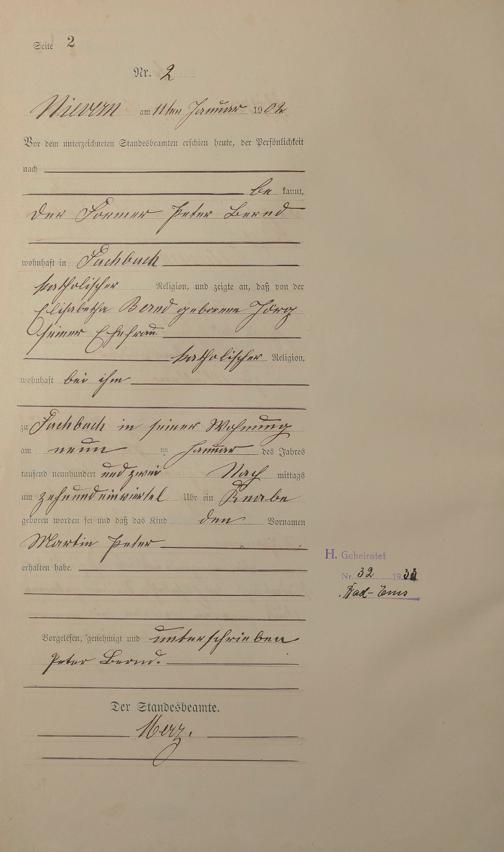 Seite 2
Nr. 2
Nievern am 11ten Januar 1902
Vor dem unterzeichneten Standesbeamten erschien heute, der Persönlichkeit
nach
be kannt,
der Former Peter Bernd
wohnhaft in Fachbach
katholischer Religion, und zeigte an, daß von der
Elisabetha Bernd geborene Jörg
seiner Ehefrau
katholischer Religion,
wohnhaft bei ihm
zu Fachbach in seiner Wohnung
am neun im Januar des Jahres
tausend neunhundert und zwei Nach mittags
um zehnundeinviertel Uhr ein Knabe
geboren worden sei und daß das Kind den Vornamen
Martin Peter
erhalten habe.
H. Geheiratet
Nr. 32 1933
Bad-Ems
Vorgelesen, genehmigt und unterschrieben
Peter Bernd.
Der Standesbeamte.
Merz.